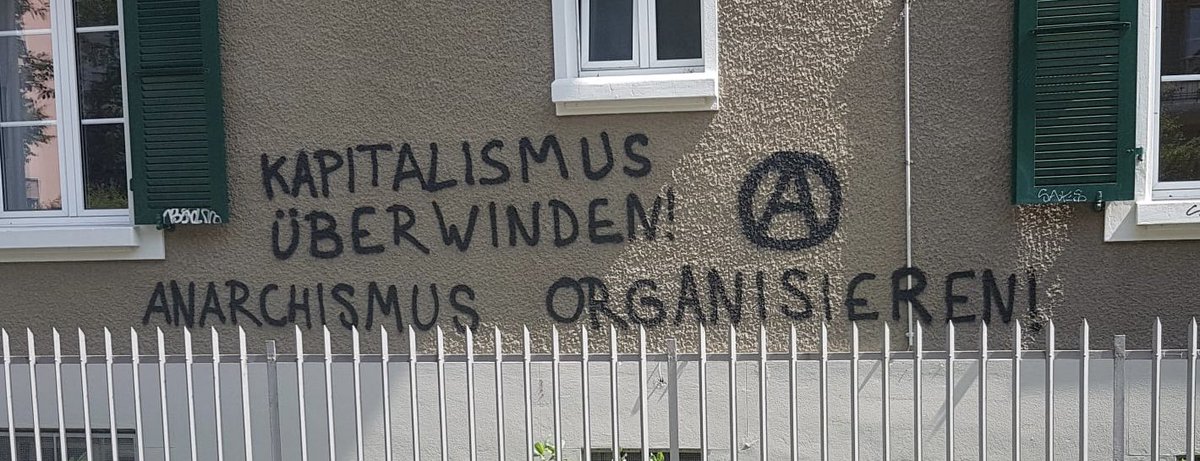 KAPITALISMUS
ÜBERWINDEN!
ANARCHISMUS ORGANISIEREN!
SAKS